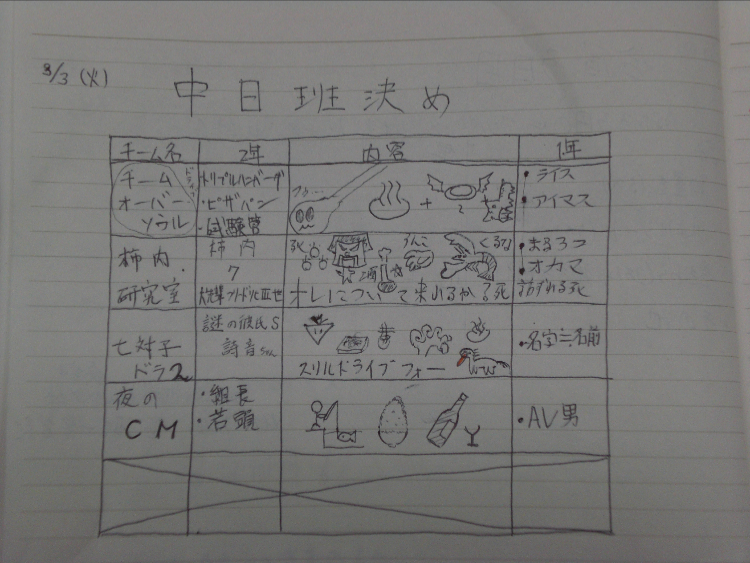 8/3 (火)
中日班決め
チーム名 2年 内容 1年
チーム
オーバー
ソウル
トリプルハンバーグ
・ピザパン
・試験管
+
・ライス
・アイマス
柿内
研究室
柿内
7
うんこ
オレについて来れるか?死
・まるうつ
・オカマ
七対子
ドラ2
謎の彼氏S
詩音ちゃん
スリルドライブフォー
・名字≒名前
夜の
CM
・組長
・若頭
・AV男